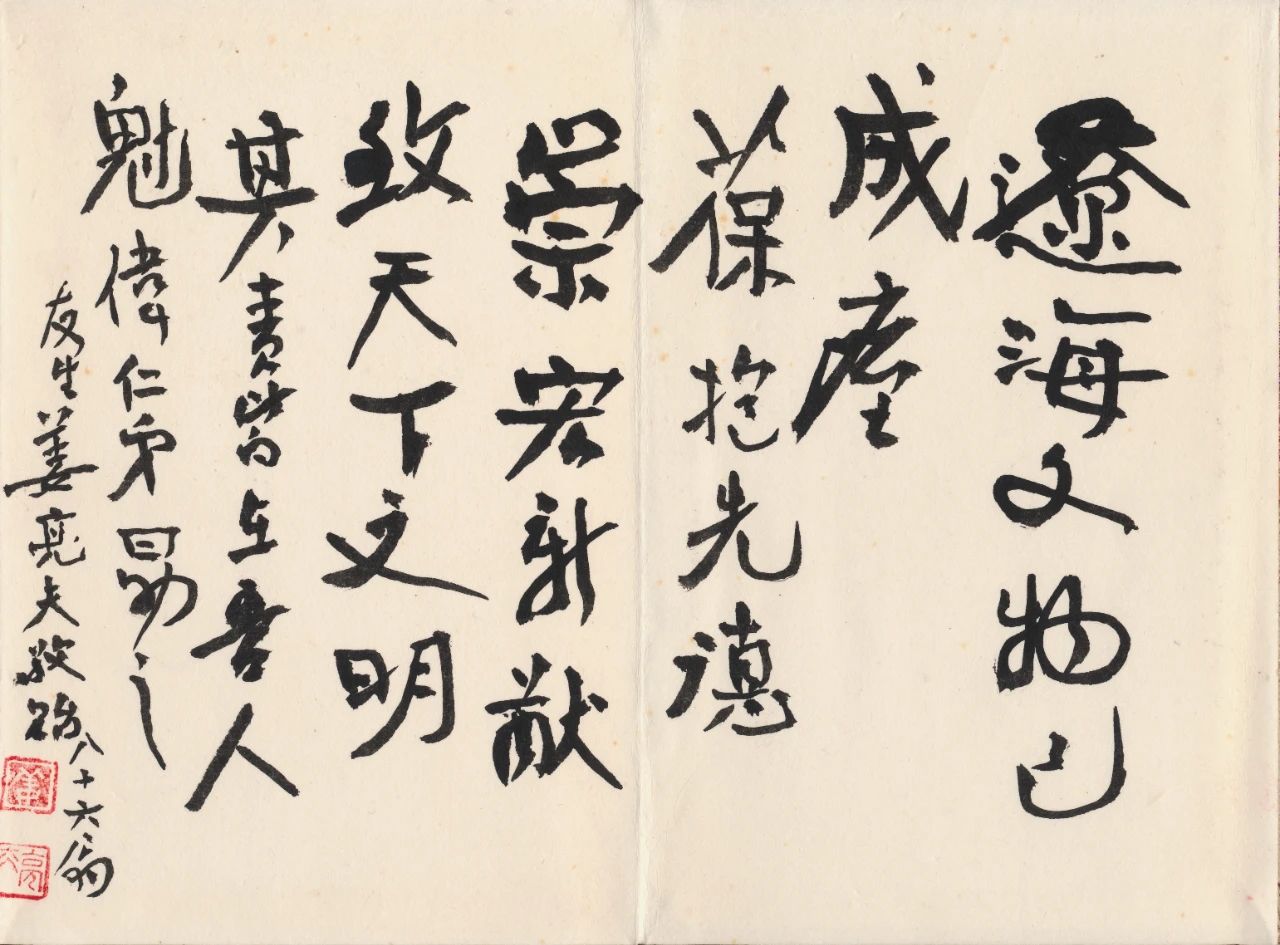 遼海文物已
成
葆抱先德
崇宏新猷
致天下文明
其責皆在吾人
魁偉仁弟勖之
友生姜亮夫敬題
八十六翁